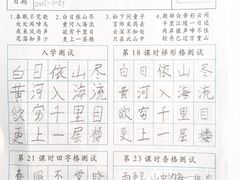 日期 2015-1-21
1.春眠不觉晓
处处闻啼鸟
夜来风雨声
花落知多少
2.白日依山尽
黄河入海流
欲穷千里目
更上一层楼
3.松下问童子
言师采药去
只在此山中
云深不知处
4.朝辞白帝彩云间
千里江陵一日还
两岸猿声啼不住
轻舟已过万重山
入学测试
白日依山尽
黄河入海流
欲穷千里目
更上一层楼
第18课时梯形格测试
白日依山尽
黄河入海流
欲穷千里目
更上一层楼
第21课时田字格测试
春眠不觉晓
第23课时条格测试